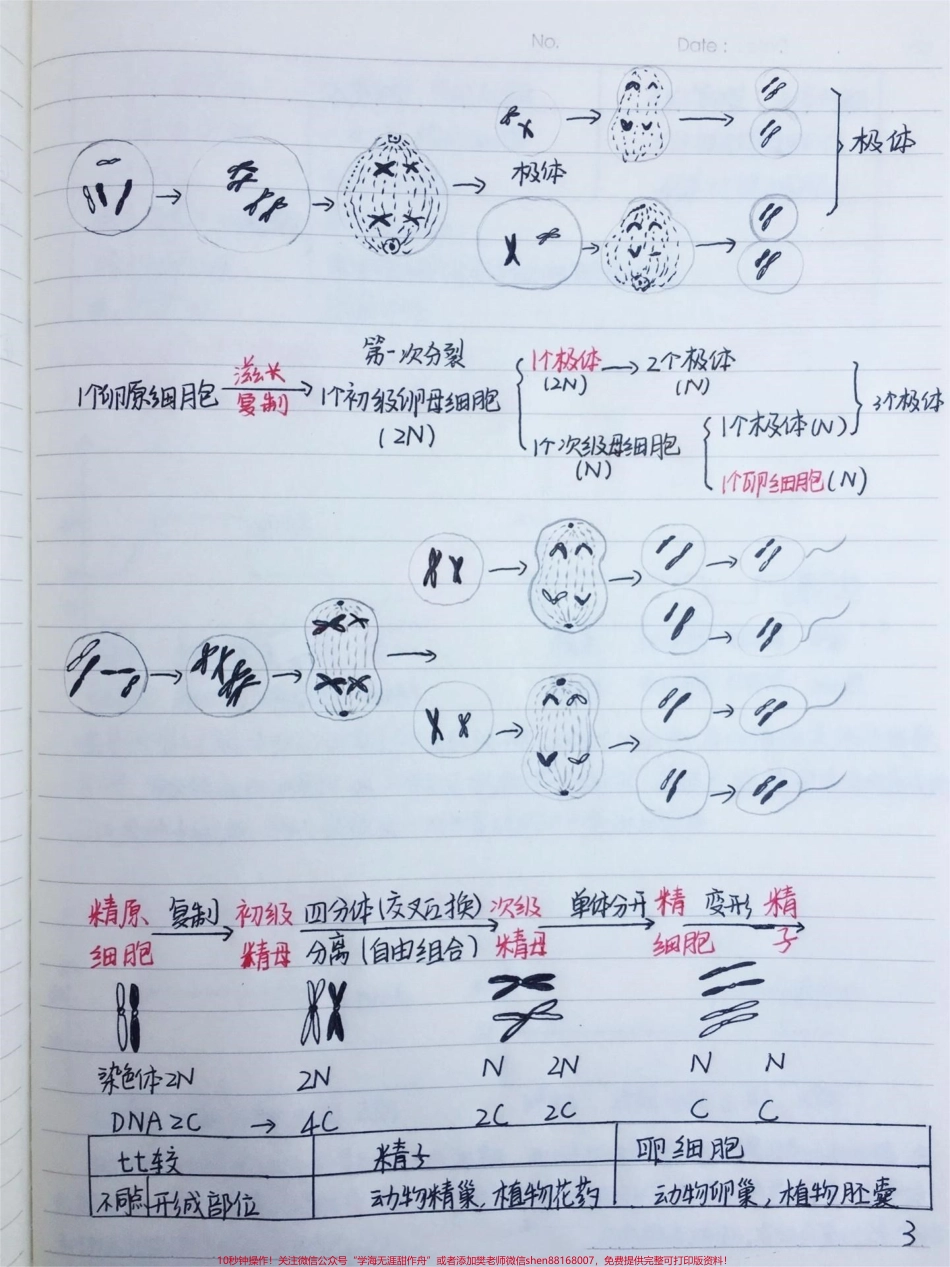 No.
Date :
极体
极体
第一次分裂
1个卵原细胞 滋长 复制 1个初级卵母细胞 (2N)
1个极体 (2N) → 2个极体 (N)
1个次级母细胞 (N)
1个极体(N)
1个卵细胞(N)
3个极体
精原 复制 初级 四分体(交叉互换) 次级 单体分开 精 变形 精
细胞 精母 分离(自由组合) 精母 细胞 子
染色体2N 2N N 2N N N
DNA 2C → 4C 2C 2C C C
比较 精子 卵细胞
不同点 形成部位 动物精巢,植物花药 动物卵巢,植物胚囊
3
10秒钟操作!关注微信公众号“学海无涯甜作舟”或者添加樊老师微信shen88168007,免费提供完整可打印版资料!